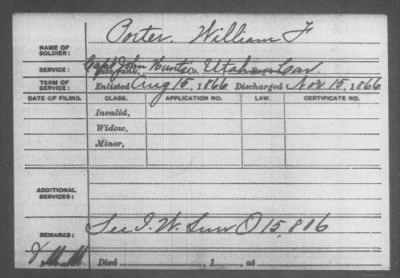 Porter, William F
NAME OF SOLDIER:
SERVICE: Capt John Hunts Co. Utah Cav.
TERM OF SERVICE: Enlisted Aug 15, 1866 Discharged Nov 15, 1866
DATE OF FILING. CLASS. APPLICATION NO. LAW. CERTIFICATE NO.
Invalid,
Widow,
Minor,
ADDITIONAL SERVICES:
REMARKS: See I. W. Surv O 15,806
Died , 1 , at